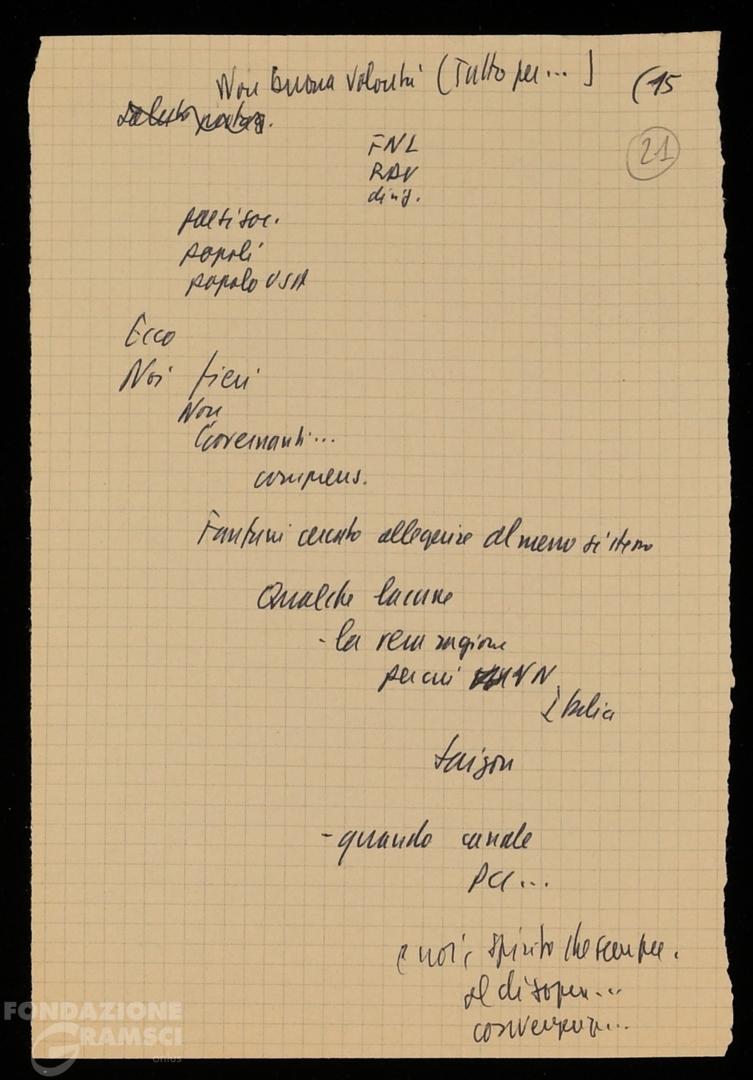 Non buona volontà (Tutto per...)
(15
21
FNL
RDV
dirig.
paesi soc.
popoli
popolo USA
Ecco
Noi fieri
Non
Governanti...
compens.
Fanfani cercato alleggerire almeno sistema
Qualche lacune
- la vera ragione
per cui VN
Italia
Saigon
- quando canale
PCI...
e noi, spirito che sempre.
al di sopra...
convergenza...
FONDAZIONE
GRAMSCI
onlus